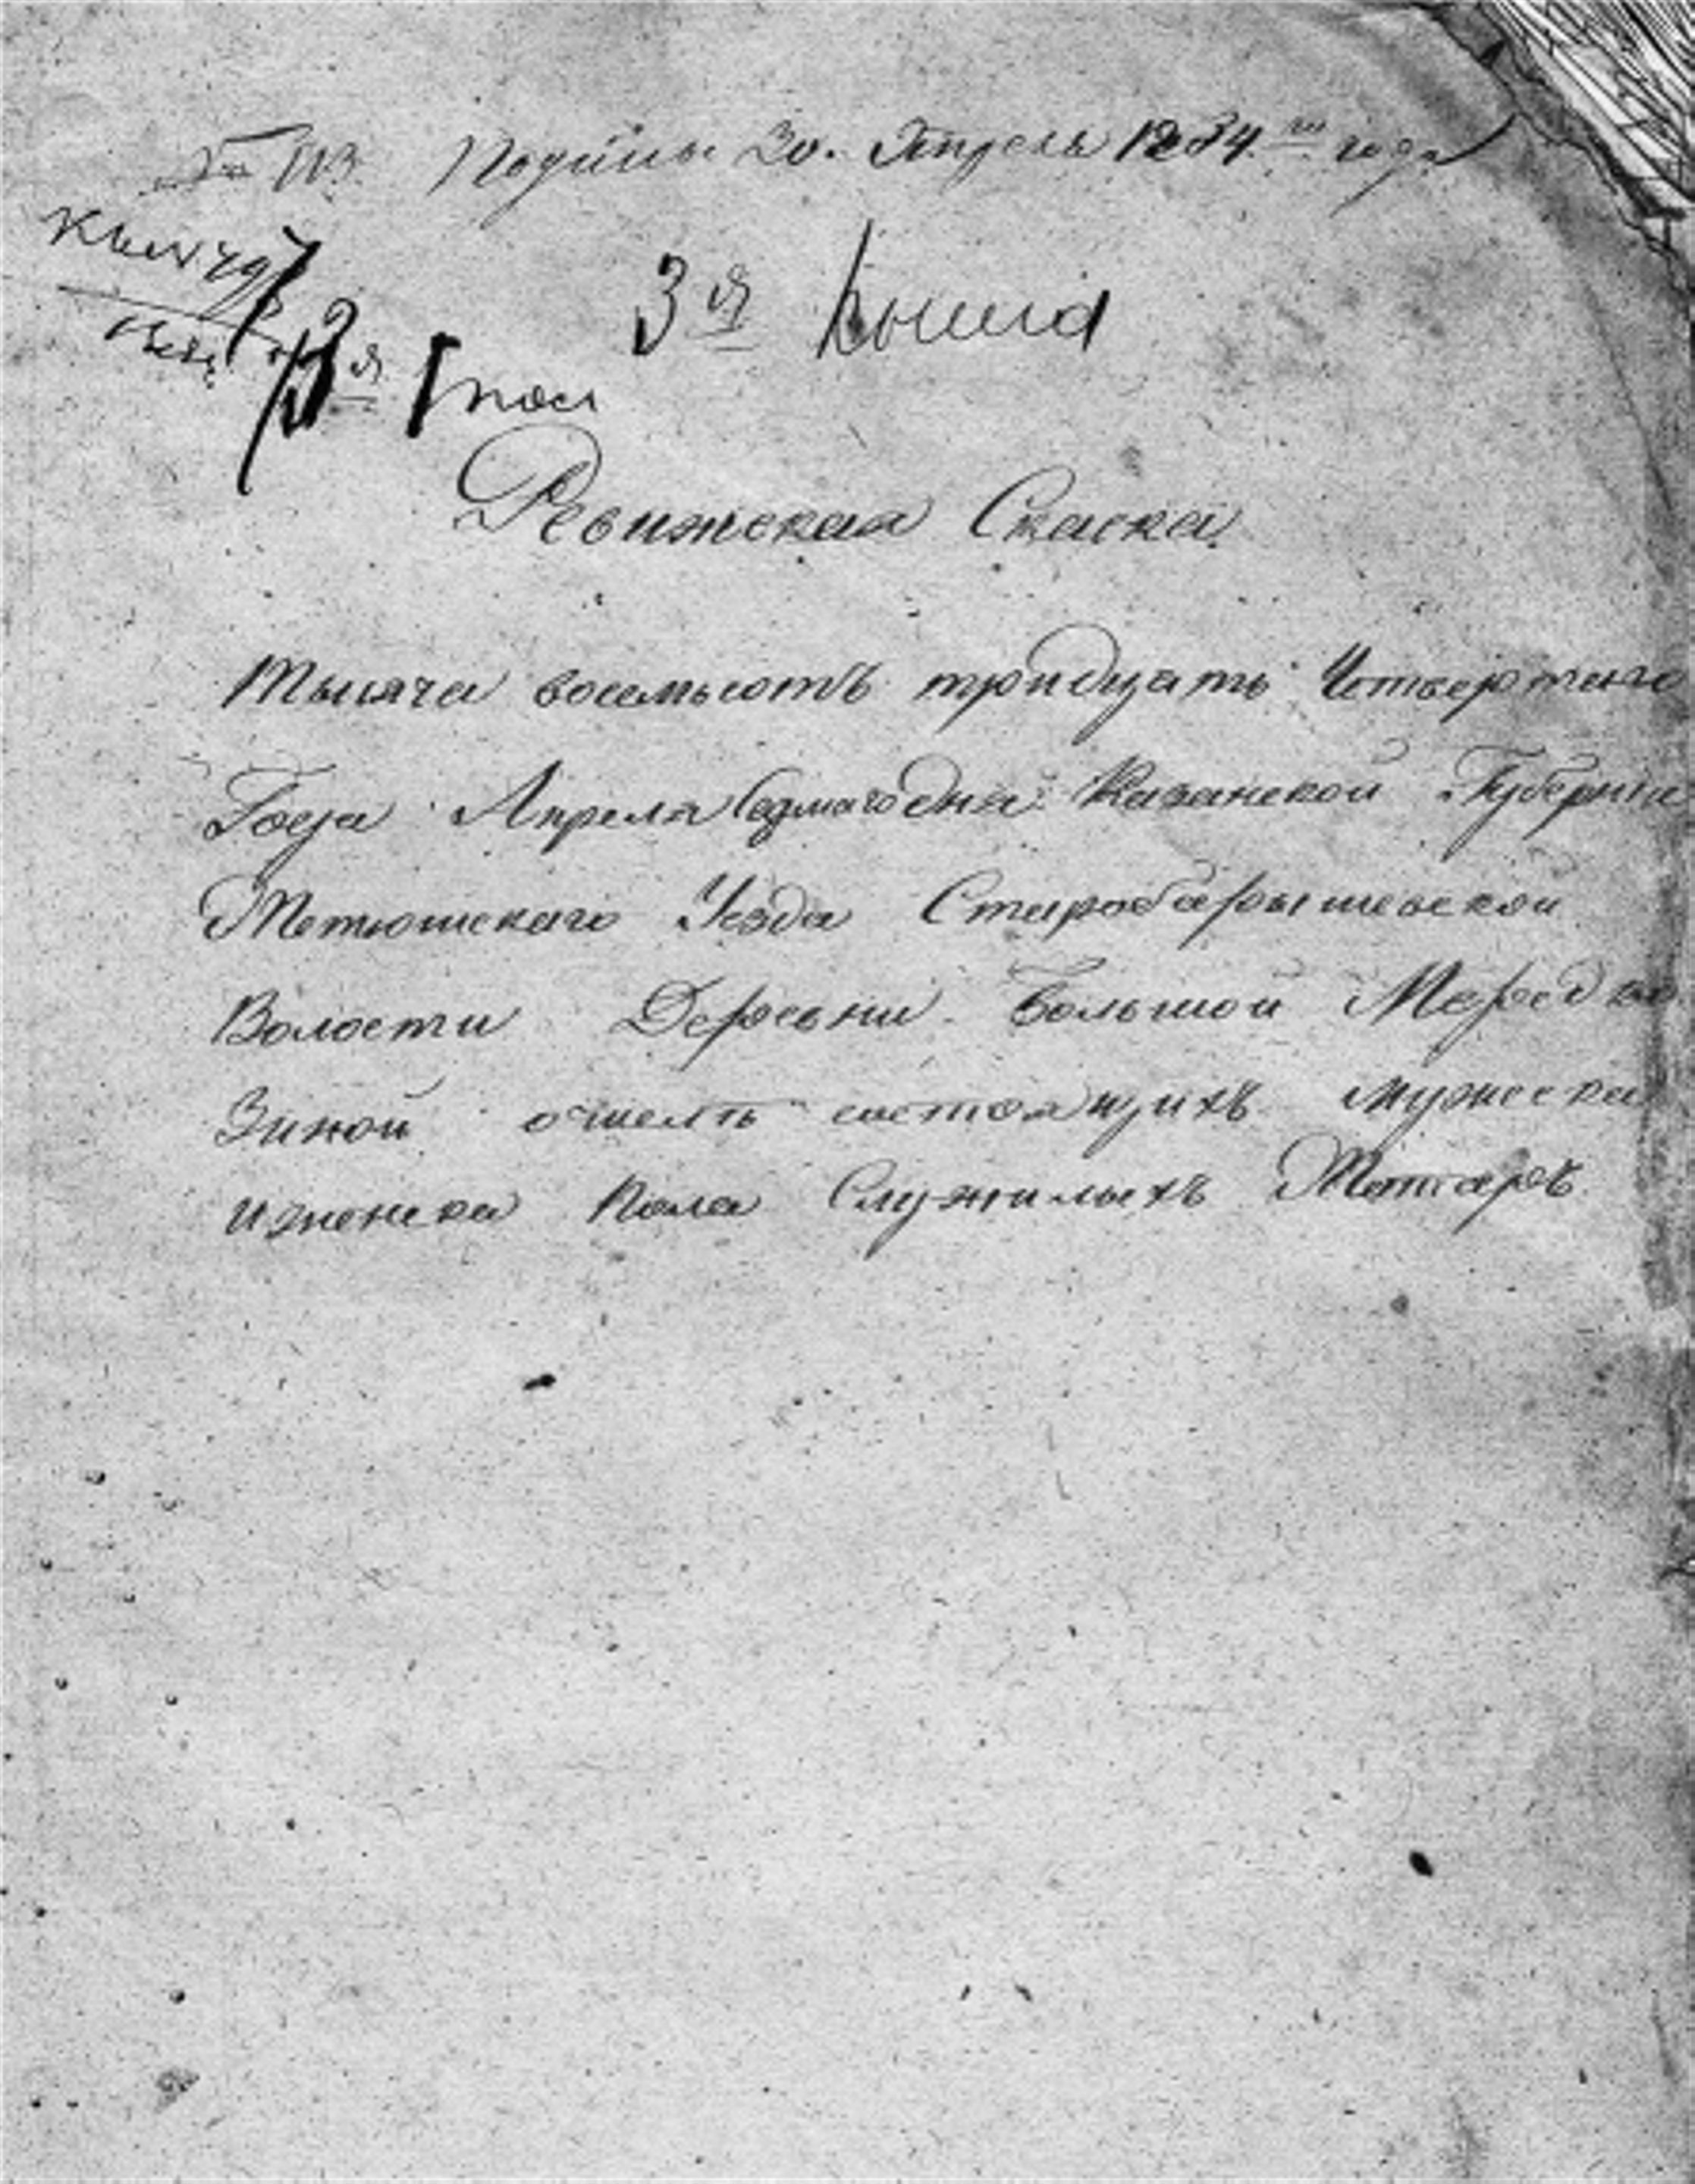 № 113. Поданы 30. Апрель 1834.го года
3я
3я
Ревижская Скаска.
Тысяча восемьсотъ тридцать Четвертаго
Года Апреля Седмаго дня Казанской Губернии
Тетюшскаго Уезда Старобарышевской
Волости Деревни Большой Меред во
Зиной очшелъ состоящихъ мужеска
иженска пола Служилыхъ Тотаръ